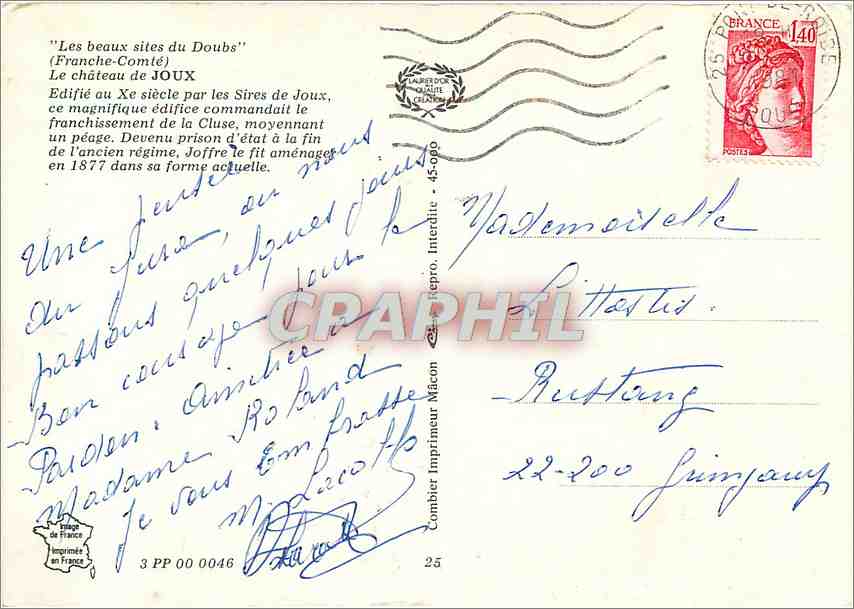 "Les beaux sites du Doubs"
(Franche-Comté)
Le château de JOUX
Edifié au Xe siècle par les Sires de Joux,
ce magnifique édifice commandait le
franchissement de la Cluse, moyennant
un péage. Devenu prison d'état à la fin
de l'ancien régime, Joffre le fit aménager
en 1877 dans sa forme actuelle.
LAURIER D'OR
DE LA
QUALITÉ
CRÉATION
FRANCE
1,40
POSTES
25 PONT-DE-ROIDE
Une pensée
du Jura, ou nous
passons quelques jours
Bon courage pour le
Pardon. Amitiés a
Madame Roland
Je vous Embrasse
M.
Mademoiselle
Rustang
22-200
CPAPHIL
Combier Imprimeur Mâcon Repro. Interdite - 45-000
Image
de France
Imprimée
en France
3 PP 00 0046
25